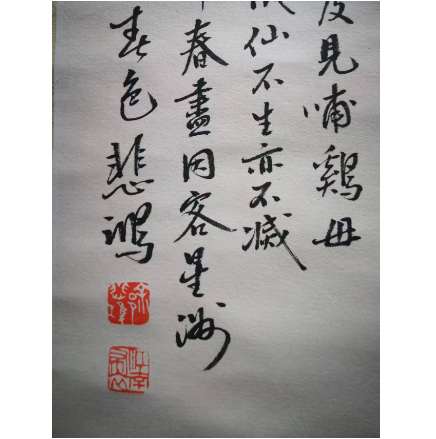 見哺鷄母
仙不生亦不滅
春盡因客星洲
色悲鴻